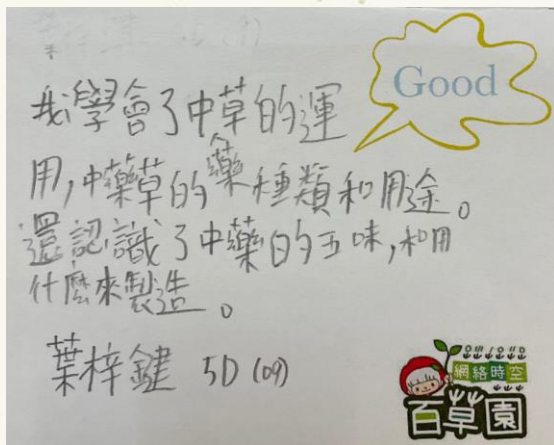 Good
我學會了中草的運
用,中藥草的藥種類和用途。
還認識了中藥的五味,和用
什麼來製造。
葉梓鍵 5D (09)
網絡時空
百草園